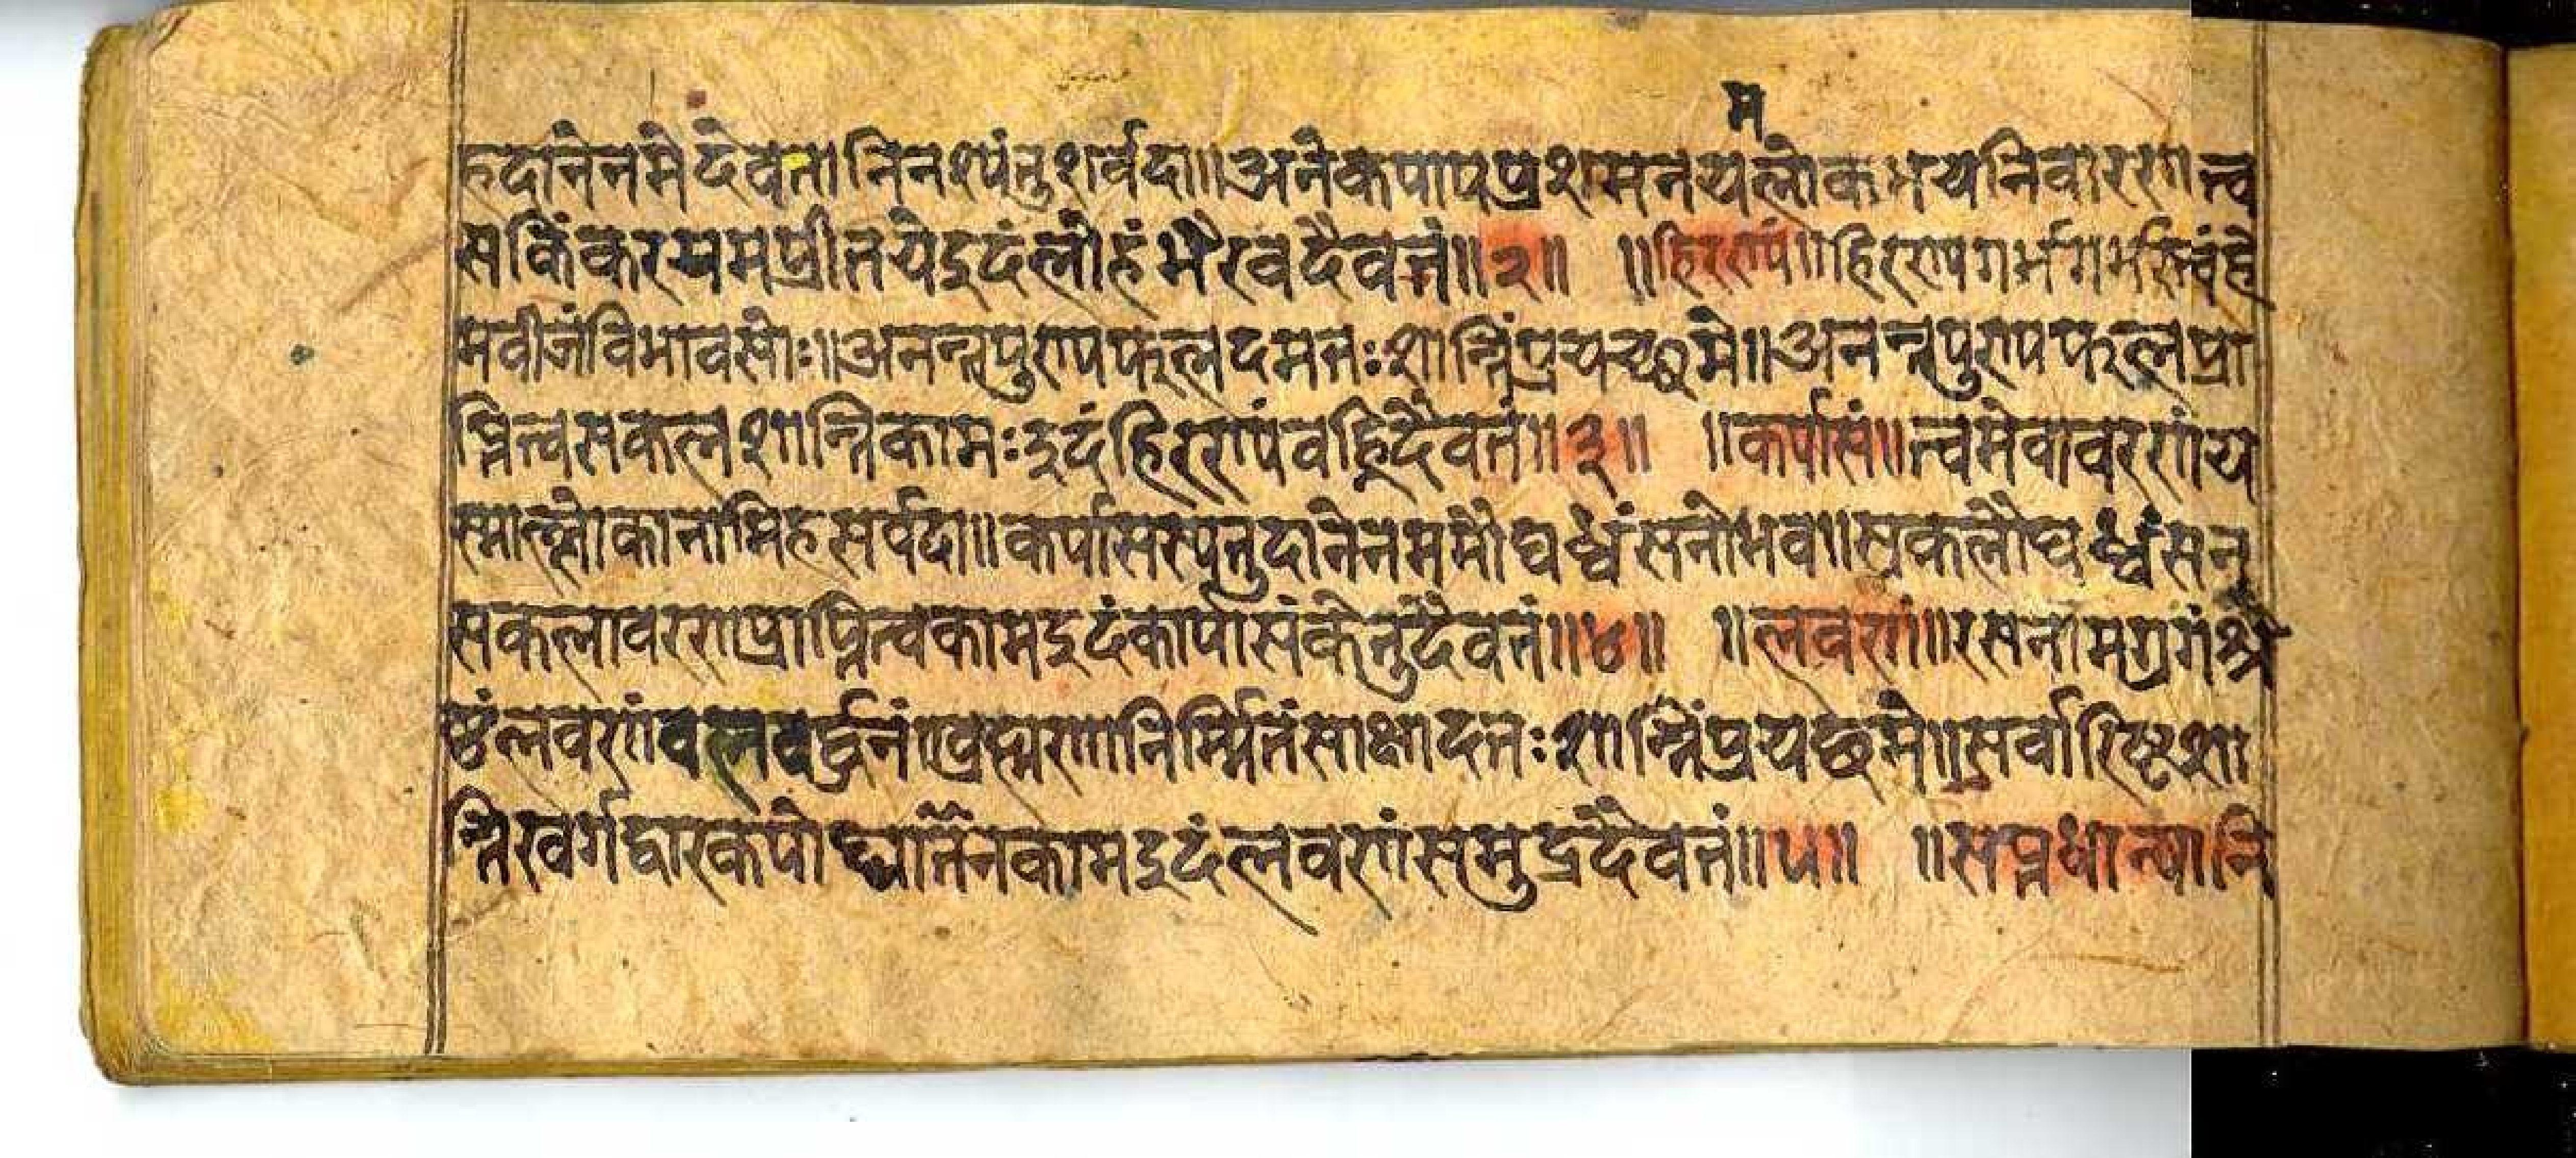 म
हदानेनमे देवता निनश्यंतुशर्वदा॥अनेकपापप्रशमनयलोकभयनिवारणत्व
सकिंकरयमप्रीतयेइदंलौहंभैरवदैवतं॥२॥ ॥हिरण्यं॥हिरण्यगर्भगर्भस्त्वंहे
मवीजंविभावसोः॥अनन्तपुण्यफलदमतःशान्तिंप्रयच्छमे॥अनन्तपुण्यफलप्रा
प्तित्वसकलशान्तिकामःइदंहिरण्यंवह्निदैवतं॥३॥ ॥कर्पासं॥त्वमेवावरणंय
स्माल्लोकानामिहसर्वदा॥कर्पासस्यतुदानेनममौघध्वंसनोभव॥सकलौघध्वंसन
सकलावरणप्राप्तित्वकामइदंकार्पासंकेतुदैवतं॥४॥ ॥लवणं॥रसनामग्रगंश्रे
ष्ठंलवणंवलवर्द्धनं॥व्रह्मणानिर्म्मितंसाक्षादतःशान्तिंप्रयछमे॥सर्वारिष्टशा
न्तिस्वर्गद्वारकपोद्घातनकामइदंलवणंसमुद्रदैवतं॥५॥ ॥सप्तधान्यानि